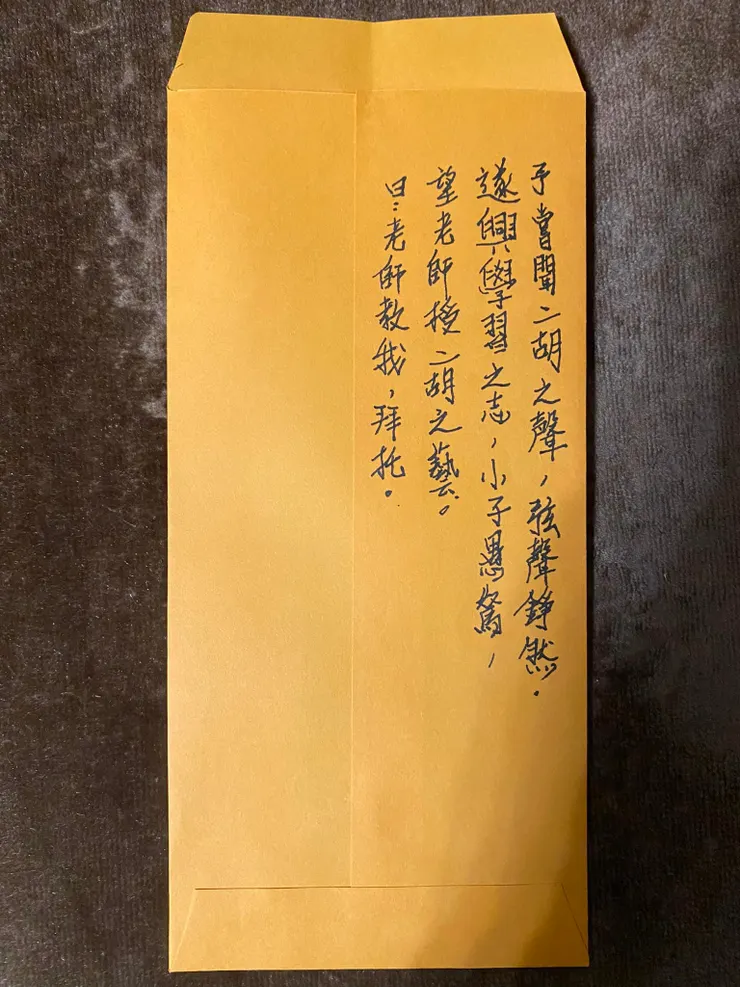 予嘗聞二胡之聲，弦聲錚然。
遂興學習之志，小子愚駑，
望老師授二胡之藝。
曰：老師教我，拜托。